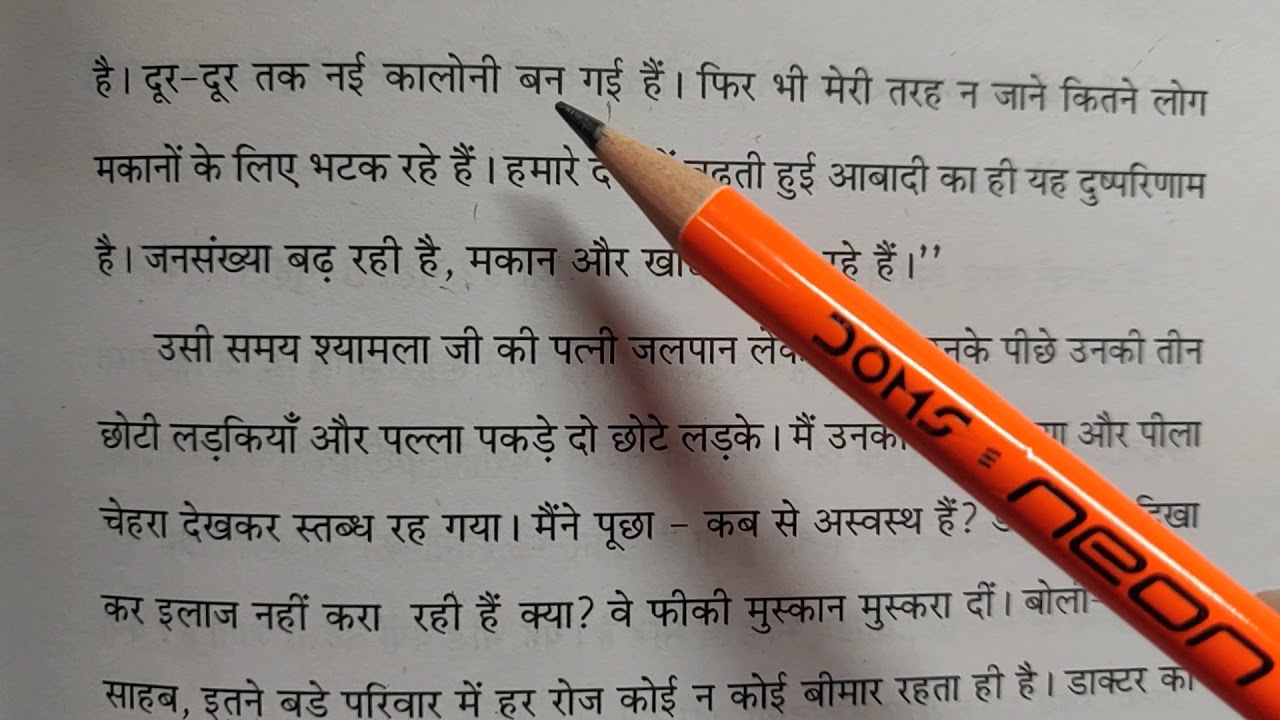 है। दूर-दूर तक नई कालोनी बन गई हैं। फिर भी मेरी तरह न जाने कितने लोग
मकानों के लिए भटक रहे हैं। हमारे बढ़ती हुई आबादी का ही यह दुष्परिणाम
है। जनसंख्या बढ़ रही है, मकान और रहे हैं।”
उसी समय श्यामला जी की पत्नी जलपान पीछे उनकी तीन
छोटी लड़कियाँ और पल्ला पकड़े दो छोटे लड़के। मैं और पीला
चेहरा देखकर स्तब्ध रह गया। मैंने पूछा - कब से अस्वस्थ हैं?
कर इलाज नहीं करा रही हैं क्या? वे फीकी मुस्कान मुस्करा दीं।
साहब, इतने बडे परिवार में हर रोज कोई न कोई बीमार रहता ही है। डाक्टर का
DOMS neon